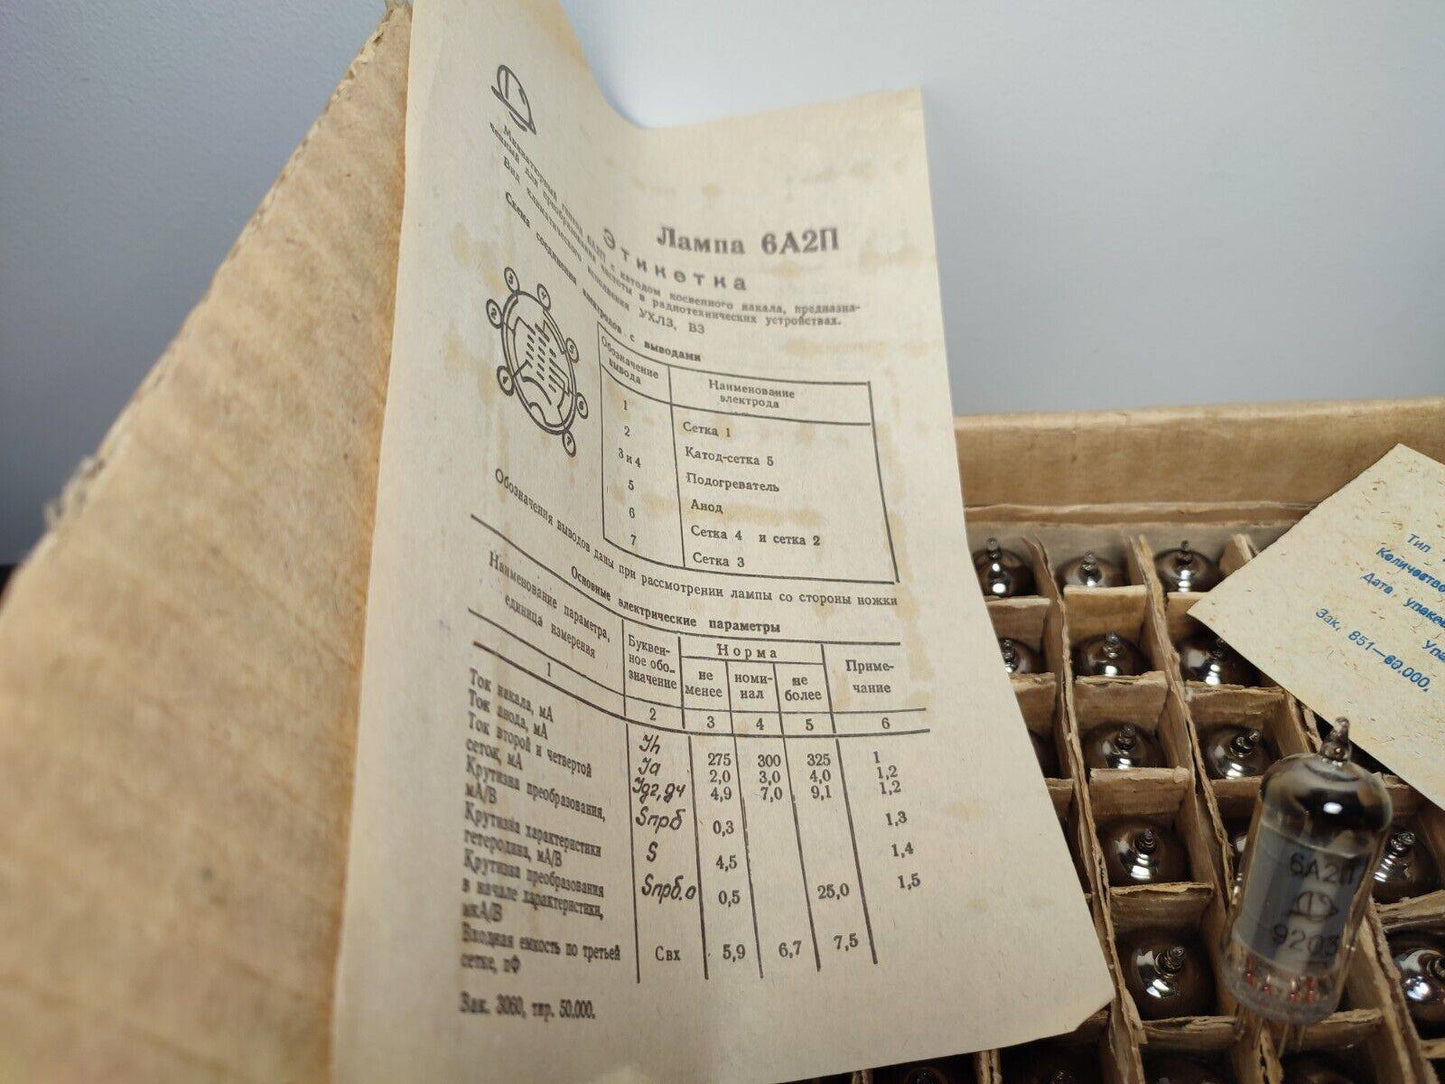 Лампа 6А2П
Этикетка
Миниатюрный пентод 6А2П с катодом косвенного накала, предназна-
ченный для преобразования частоты в радиотехнических устройствах.
Вид климатического исполнения УХЛ3, В3
Схема соединения электродов с выводами
3 4
2 5
1 6
7
Обозначение вывода Наименование электрода
1 Сетка 1
2 Катод-сетка 5
3 и 4 Подогреватель
5 Анод
6 Сетка 4 и сетка 2
7 Сетка 3
Обозначения выводов даны при рассмотрении лампы со стороны ножки
Основные электрические параметры
Наименование параметра, единица измерения
Буквен-
ное обо-
значение
Норма
не менее
номи-
нал
не более
Приме-
чание
1 2 3 4 5 6
Ток накала, мА Jh 275 300 325 1
Ток анода, мА Ja 2,0 3,0 4,0 1,2
Ток второй и четвертой
сеток, мА Jg2,g4 4,9 7,0 9,1 1,2
Крутизна преобразования,
мА/В Sпрб 0,3 1,3
Крутизна характеристики
гетеродина, мА/В S 4,5 1,4
Крутизна преобразования
в начале характеристики,
мкА/В Sпрб.о 0,5 25,0 1,5
Входная емкость по третьей
сетке, пФ Свх 5,9 6,7 7,5
Зак. 3060, тир. 50.000.
Тип
Количество
Дата упаков
Упа
Зак. 851—60.000.
6А2П
9203